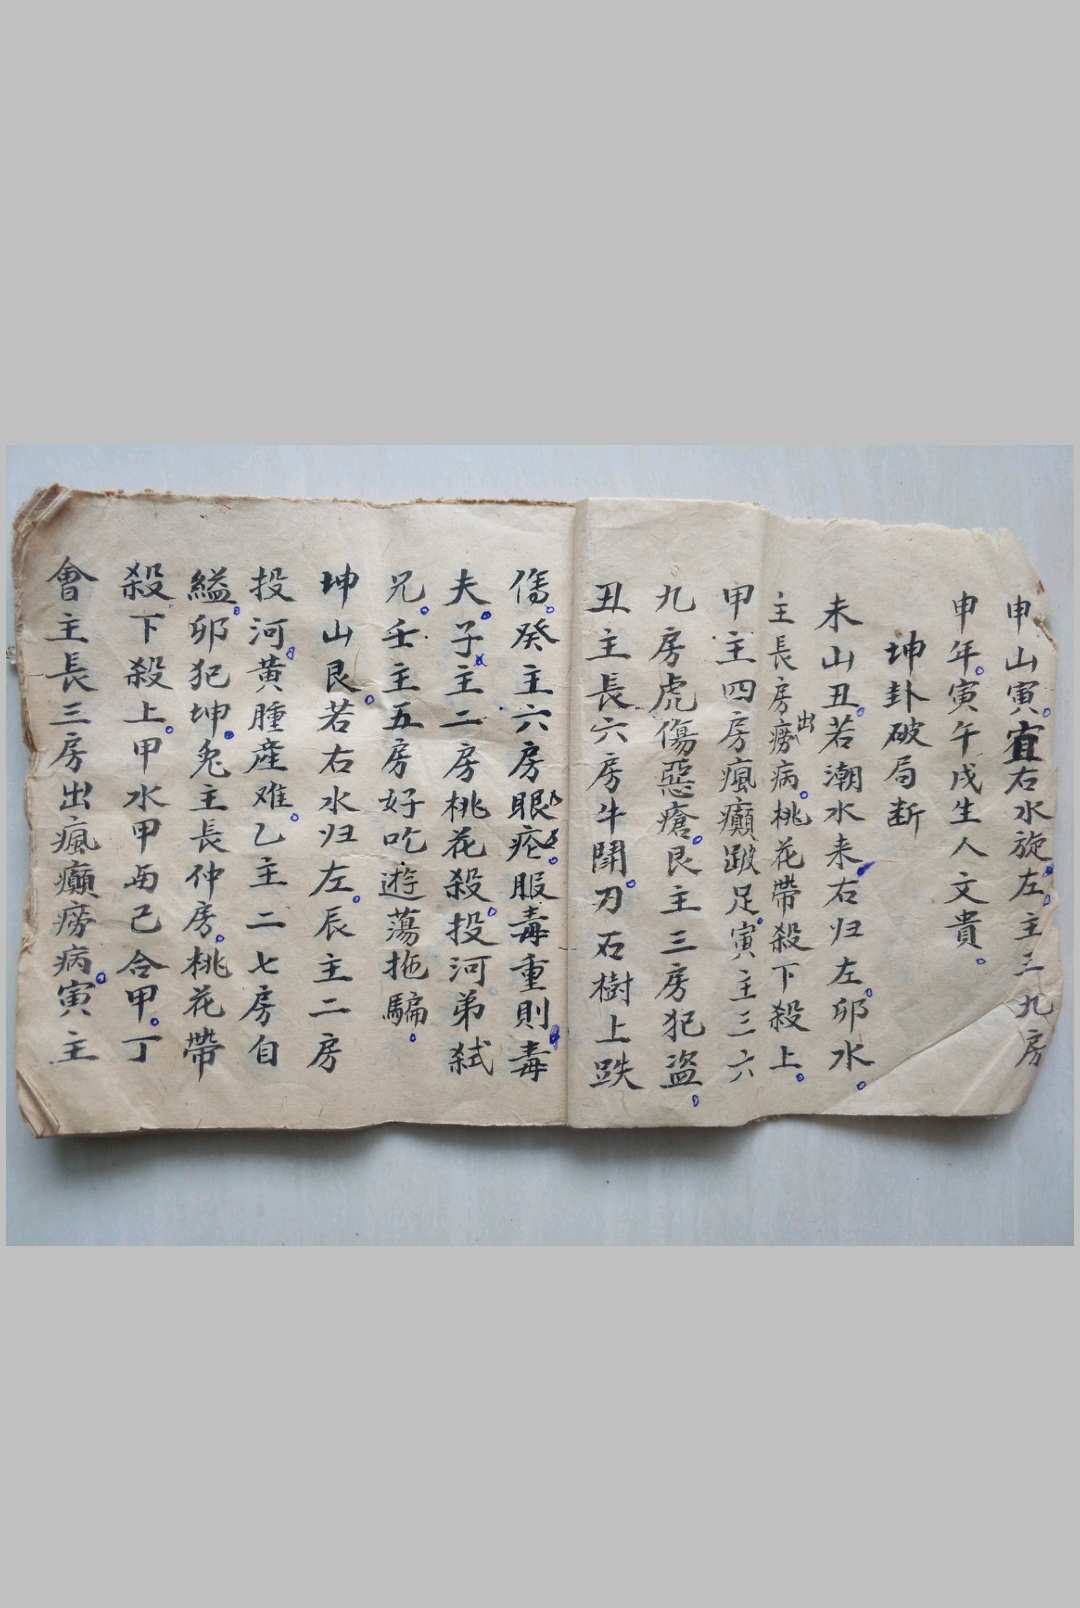 申山寅。宜右水旋。左。主三九房
申年。寅午戌生人文貴。
坤卦破局断
未山丑。若潮水来。右归左。卯水。
主長房出癆病。桃花帶殺下殺上。
甲主四房瘋癲跛足。寅主三六
九房虎傷惡瘡。艮主三房犯盜。
丑主長六房牛鬪。刃石樹上跌
傷。癸主六房眼疙。服毒重則毒
夫。子主二房桃花殺。投河弟弑
兄。壬主五房好吃遊蕩拖騙。
坤山艮。若右水归左。辰主二房
投河。黄腫産难。乙主二七房自
縊。卯犯坤。兎主長仲房。桃花帶
殺下殺上。甲水甲与己合甲。丁
會主長三房出瘋癲癆病。寅主